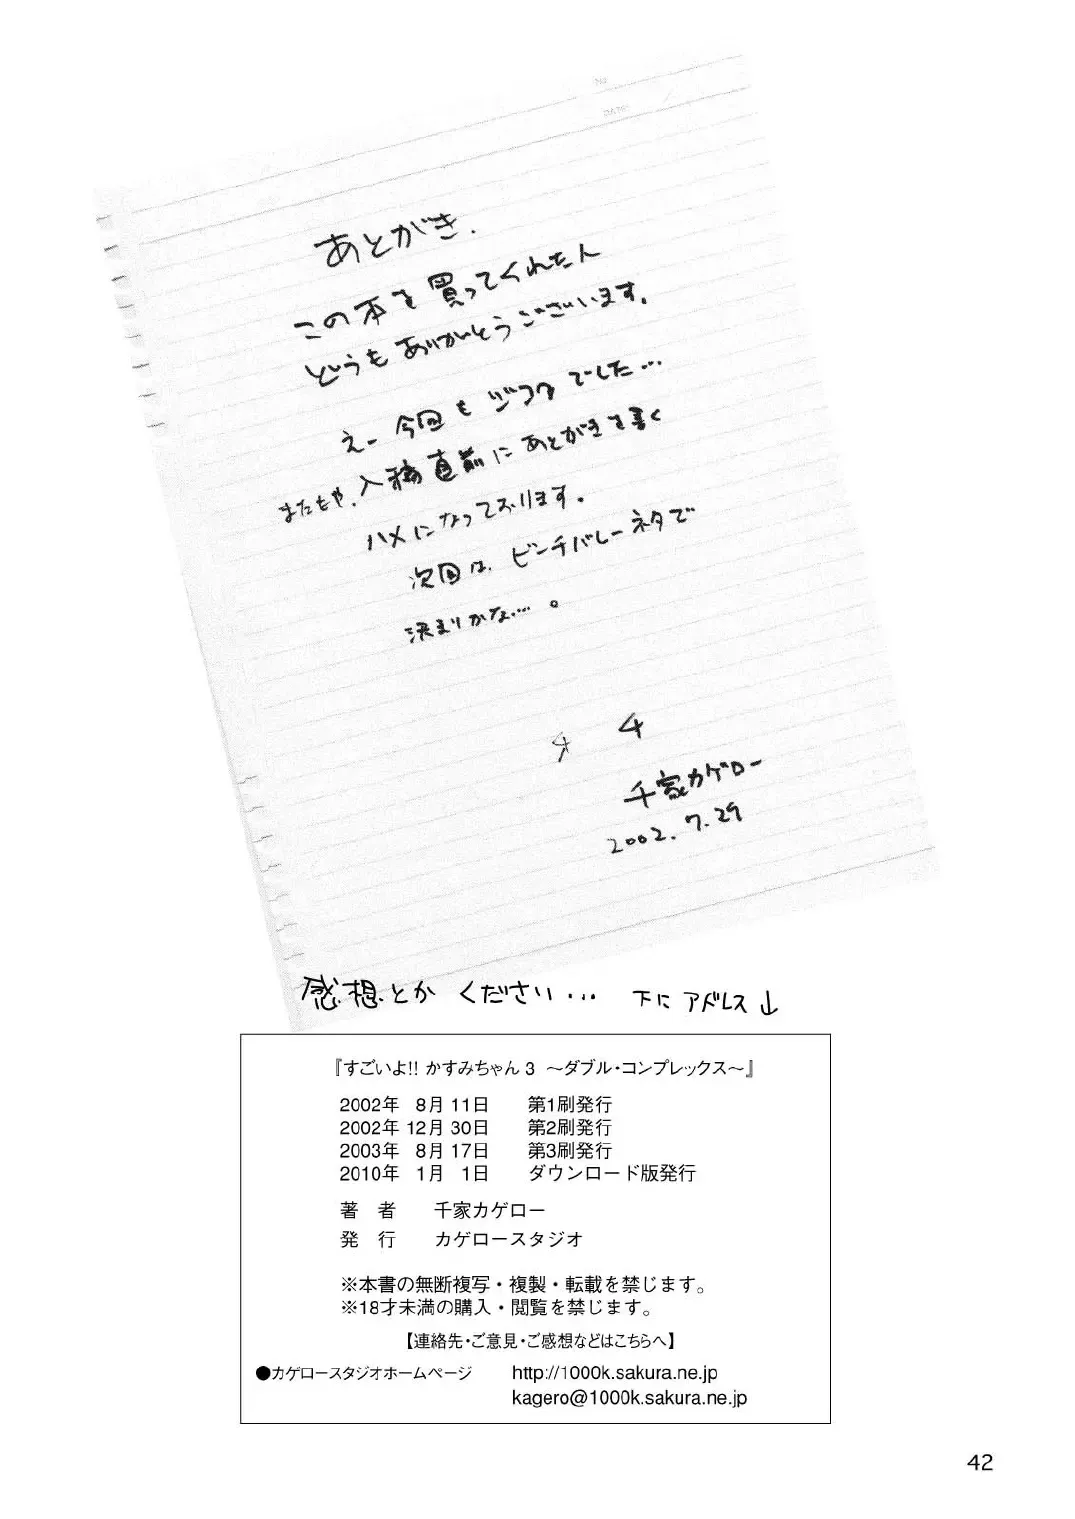 No.
DATE
あとがき.
この本を買ってくれた人
どうもありがとうございます.
えー今回もジフクでした…
またもや、入稿直前にあとがきを書く
ハメになっております。
次回は、ビーチバレーネタで
決まりかな…。
千家カゲロー
2002.7.29
感想とか ください… 下に アドレス↓
『すごいよ!! かすみちゃん 3 ～ダブル・コンプレックス～』
2002年 8月 11日 第1刷発行
2002年 12月 30日 第2刷発行
2003年 8月 17日 第3刷発行
2010年 1月 1日 ダウンロード版発行
著 者 千家カゲロー
発 行 カゲロースタジオ
※本書の無断複写・複製・転載を禁じます。
※18才未満の購入・閲覧を禁じます。
【連絡先・ご意見・ご感想などはこちらへ】
●カゲロースタジオホームページ http://1000k.sakura.ne.jp
kagero@1000k.sakura.ne.jp
42